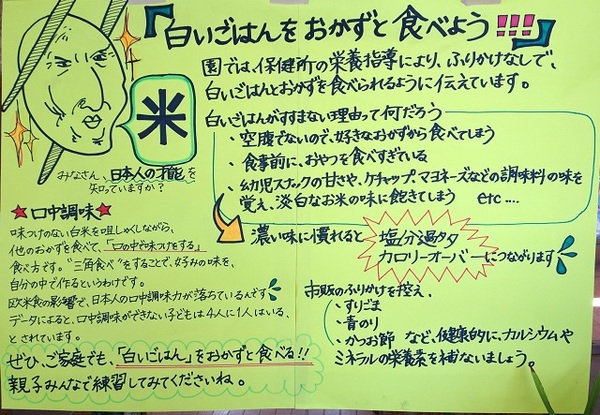 『白いごはんをおかずと食べよう!!!』
園では、保健所の栄養指導により、ふりかけなしで、
白いごはんとおかずを食べられるように伝えています。
白いごはんがすすまない理由って何だろう
・空腹でないので、好きなおかずから食べてしまう
・食事前に、おやつを食べすぎている
・幼児スナックの甘さや、ケチャップ、マヨネーズなどの調味料の味を
覚え、淡白なお米の味に飽きてしまう etc....
濃い味に慣れると
塩分過多
カロリーオーバーにつながります
市販のふりかけを控え、
・すりごま
・青のり
・かつお節 など、健康的に、カルシウムや
ミネラルの栄養素を補ないましょう。
米
みなさん、日本人の才能を
知っていますか?
★口中調味★
味つけのない白米を咀しゃくしながら、
他のおかずを食べて、「口の中で味つけをする」
食べ方です。"三角食べ"をすることで、好みの味を、
自分の中で作るというわけです。
欧米食の影響で、日本人の口中調味力が落ちているんです
データによると、口中調味ができない子どもは4人に1人はいる、
とされています。
ぜひ、ご家庭でも、「白いごはん」をおかずと食べる!!
親子みんなで練習してみてくださいね。